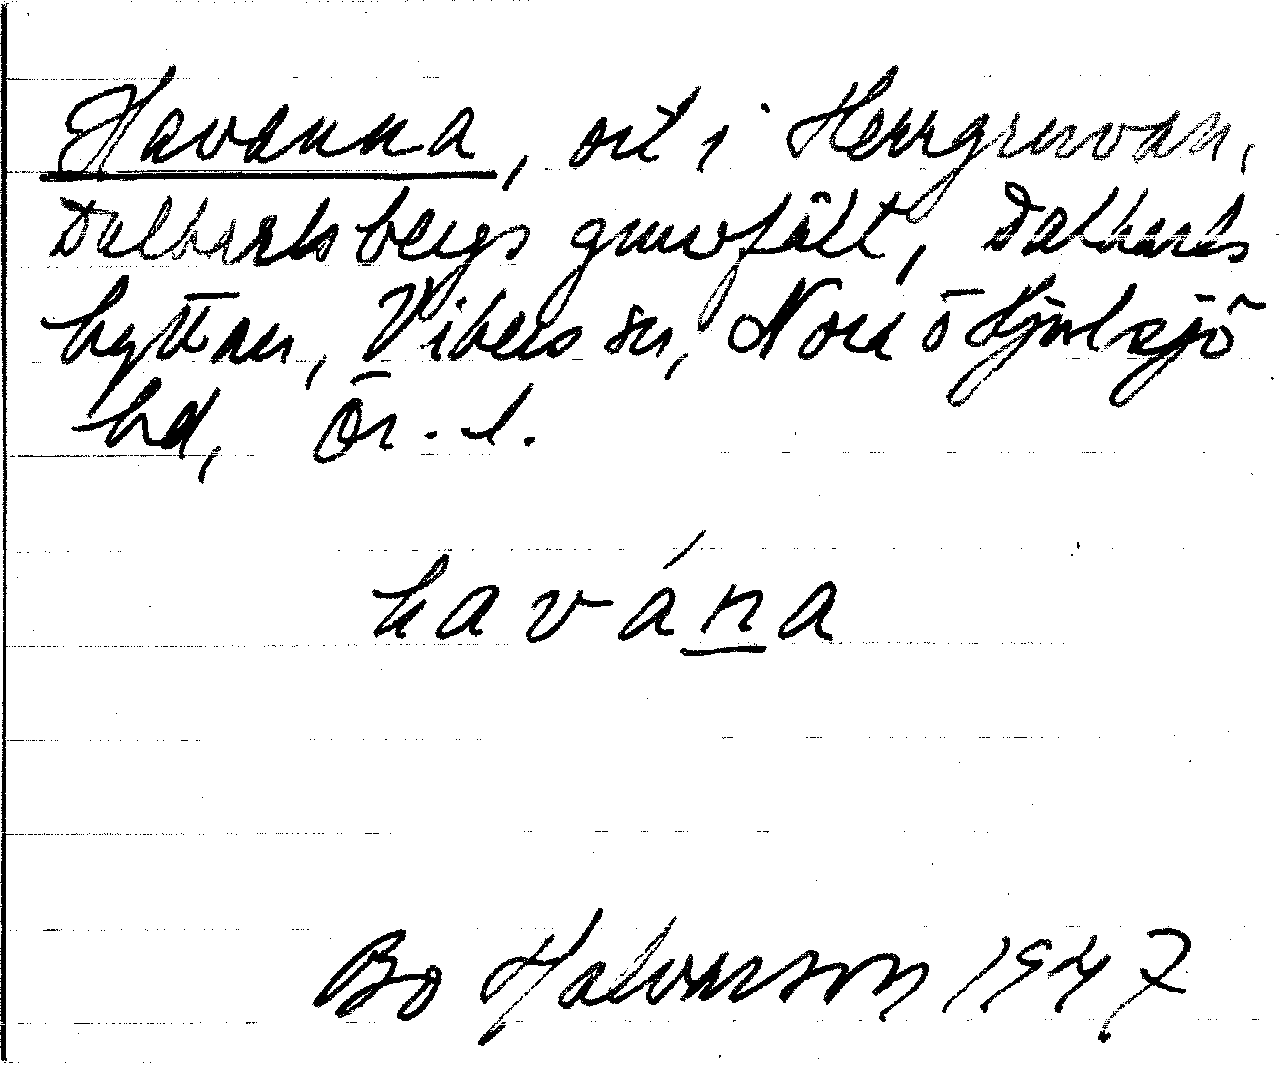 Havanna, ort i Herrgruvan,
Dalkarlsbergs gruvfält, Dalkarls
hyttan, Vikers sn, Nora o Hjulsjö
hd, Ör. l.
havána
Bo Halvarson 1947